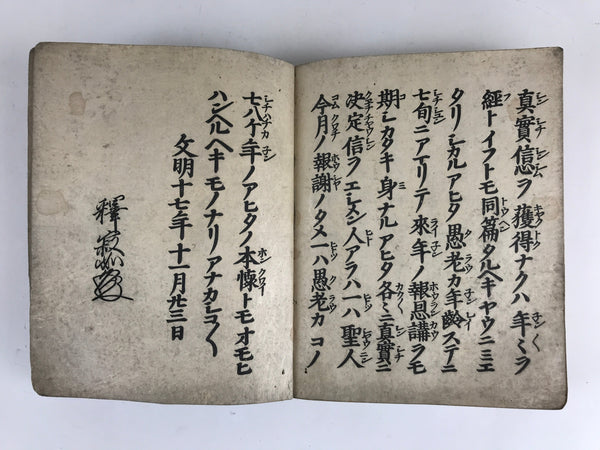 真實信ヲ獲得ナクハ年ミヲ
經トイフトモ同篇タルヘキヤウニミエ
タリシカルアヒタ愚老カ年齡ステニ
七旬ニアマリテ來年ノ報恩講ヲモ
期シカタキ身ナルアヒタ各ミニ真實ニ
決定信ヲエシメン人アラハ一ハ聖人
今月ノ報謝ノタメ一ハ愚老カコノ
七八ケ年ノアヒタノ本懷トモオモヒ
ハンヘルヘキモノナリアナカシコ〱
文明十七年十一月廿三日
釋